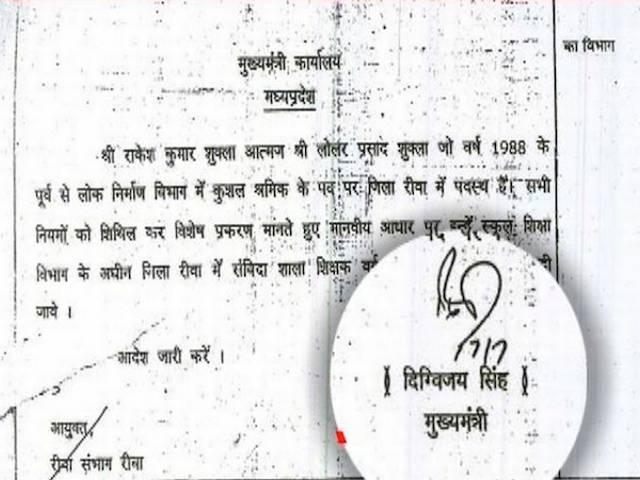 का विभाग
मुख्यमंत्री कार्यालय
मध्यप्रदेश
श्री राकेश कुमार शुक्ला आत्मज श्री लोलर प्रसाद शुक्ला जो वर्ष 1988 के
पूर्व से लोक निर्माण विभाग में कुशल श्रमिक के पद पर जिला रीवा में पदस्थ हैं। सभी
नियमों को शिथिल कर विशेष प्रकरण मानते हुए मानवीय आधार पर इन्हें स्कूल शिक्षा
विभाग के अधीन जिला रीवा में संविदा शाला शिक्षक
जाये ।
आदेश जारी करें ।
( दिग्विजय सिंह )
मुख्यमंत्री
आयुक्त,
रीवा संभाग रीवा